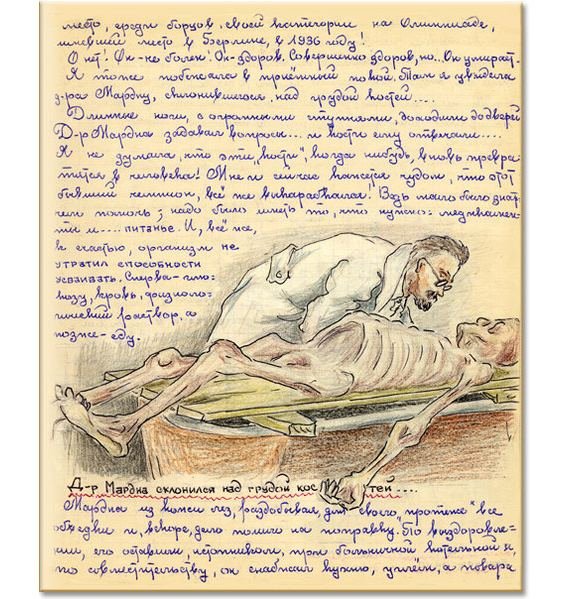 место, среди борцов своей категории на Олимпиаде,
имевшей место в Берлине, в 1936 году!
О нет! Он-не болен! Он-здоров. Совершенно здоров, но.. Он умирает-
Я тоже побежала в приёмный покой. Там я увидела
д-ра Мардну, склонившегося над грудой костей....
Длинные ноги, с огромными ступнями, доходили до двери
Д-р Мардна задавал вопросы... и кости ему отвечали....
Я не думала, что эти „кости", когда нибудь, вновь превра-
тятся в человека! Мне и сейчас кажется чудом, что этот
бывший чемпион, всё же выкарабкался. Ведь мало было знать
чем помочь; надо было иметь то, что нужно: медикамен-
ты и.... питанье. И, всё же,
к счастью, организм не
утратил способности
усваивать. Сперва- глю-
козу, кровь, физиоло-
гический раствор, а
позже- еду.
Д-р Мардна склонился над грудой кос тей....
Мардна из кожи лез, раздобывая, для своего „протеже" все
объедки и, вскоре, дело пошло на поправку. По выздоровле-
нии, его оставили, истопником, при больничной котельной и,
по совместительству, он снабжал кухню, углём, а повара